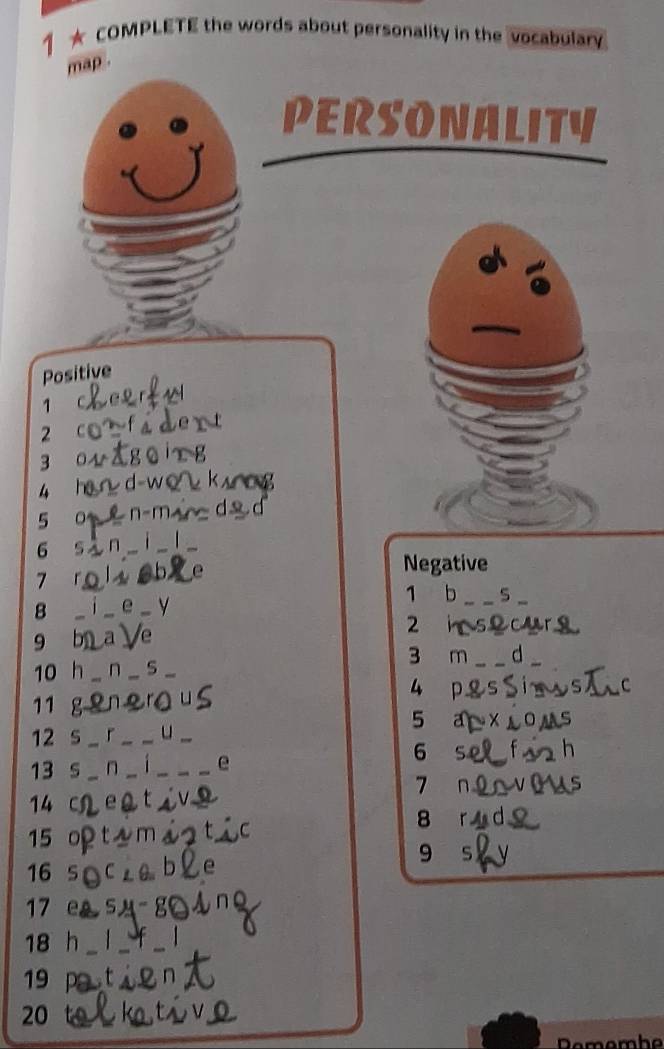 1 ★ COMPLETE the words about personality in the vocabulary
map.
PERSONALITY
Positive
1 cheerful
2 confident
3 outgoing
4 hard-working
5 open-minded
6 sin_i_l_
7 reliable
8 _i_e_y
9 brave
10 h_n_s_
11 generous
12 s_r__u_
13 s_n_i___e
14 creative
15 optimistic
16 sociable
17 easy-going
18 h_l_f_l
19 patient
20 talkative
Negative
1 b__s_
2 insecure
3 m__d_
4 pessimistic
5 anxious
6 selfish
7 nervous
8 rude
9 shy